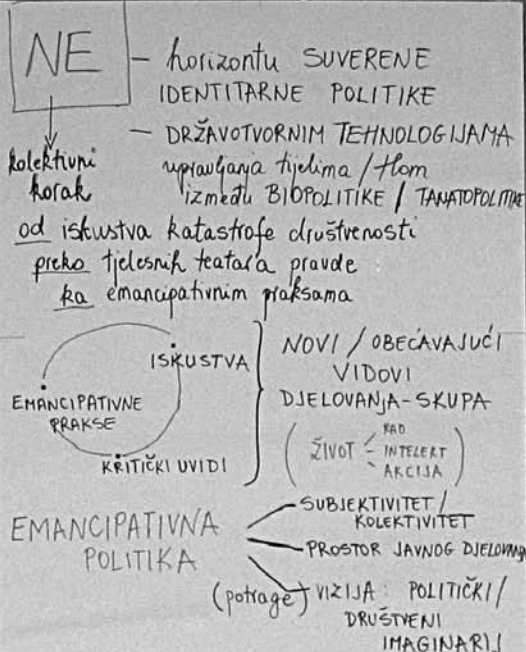 NE
- horizontu SUVERENE
IDENTITARNE POLITIKE
- DRŽAVOTVORNIM TEHNOLOGIJAMA
upravljanja tijelima / tlom
između BIOPOLITIKE / TANATOPOLITIKE
kolektivni
korak
od iskustva katastrofe društvenosti
preko tjelesnih teatara pravde
ka emancipativnim praksama
ISKUSTVA
EMANCIPATIVNE
PRAKSE
KRITIČKI UVIDI
NOVI / OBEĆAVAJUĆI
VIDOVI
DJELOVANJA-SKUPA
(ŽIVOT - RAD
- INTELEKT
- AKCIJA)
EMANCIPATIVNA
POLITIKA
SUBJEKTIVITET /
KOLEKTIVITET
PROSTOR JAVNOG DJELOVANJA
(potrage) VIZIJA: POLITIČKI /
DRUŠTVENI
IMAGINARIJ